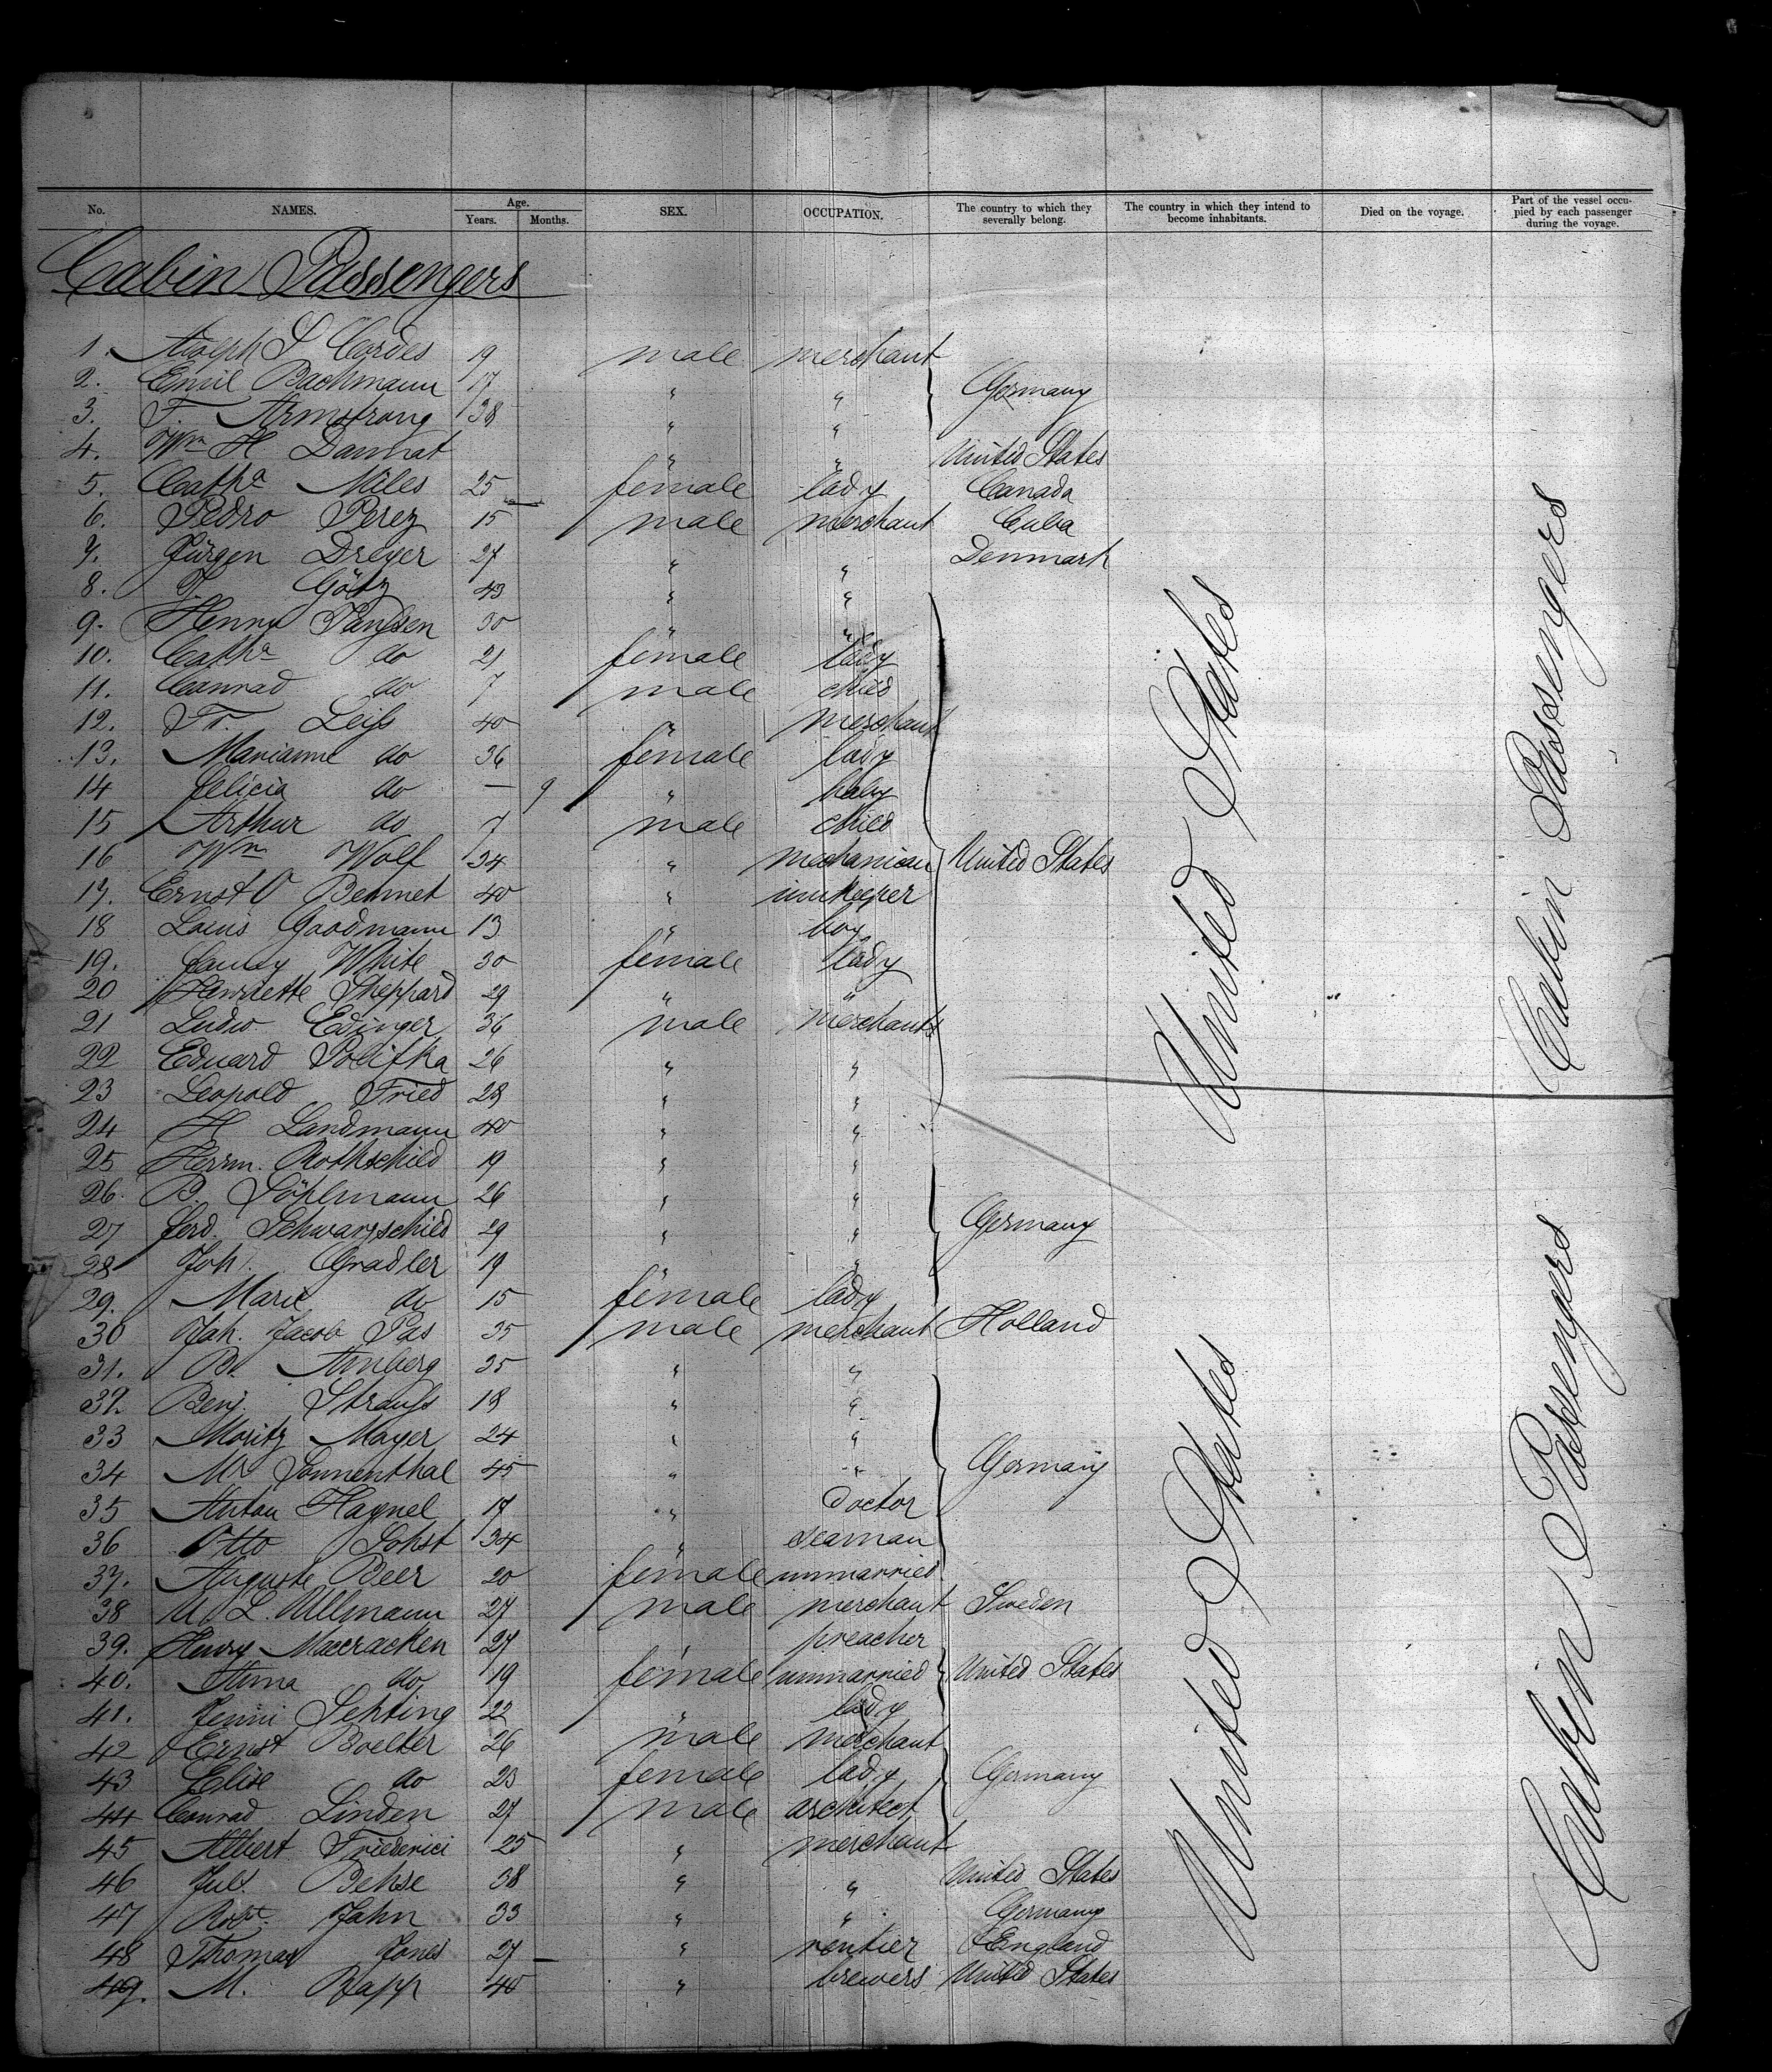 No. NAMES. Age. Years. Months. SEX. OCCUPATION. The country to which they severally belong. The country in which they intend to become inhabitants. Died on the voyage. Part of the vessel occupied by each passenger during the voyage.
Cabin Passengers
1. Adolph S Cordes 19 male merchant
2. Emil Bachmann 17 " " Germany
3. F. Armstrong 38 " "
4. Wm H Dannat " " United States
5. Catha Miles 25 female lady Canada
6. Pedro Perez 15 male merchant Cuba
7. Jürgen Dreyer 27 " " Denmark
8. Götz 43 " "
9. Henny Janssen 30 " "
10. Catha do 21 female lady
11. Conrad do 7 male child
12. Fr. Leiss 40 " merchant
13. Marianne do 36 female lady
14 Felicia do — 9 " baby
15 Arthur do 7 male child
16 Wm Wolf 34 " mechanician United States
17. Ernst O Bennet 40 " innkeeper
18 Louis Goodmann 13 " boy
19. Fanny White 30 female lady
20 Henriette Sheppard 29 " "
21 Ludw Edinger 36 male merchants
22 Eduard Politka 26 " "
23 Leopold Fried 28 " "
24 H Landmann 40 " "
25 Herrm. Rothschild 19 " "
26. B. Söhlmann 26 " "
27 Ferd. Schwarzschild 29 " " Germany
28 Joh. Gradler 19 " "
29. Marie do 15 female lady
30 Joh. Jacob Pas 35 male merchant Holland
31. B. Amberg 25 " "
32 Benj. Strauss 18 " "
33 Moritz Mayer 24 " "
34 Mr Sonnenthal 45 " " Germany
35 Anton Hagnel 17 " doctor
36 Otto Johst 34 " seaman
37. Auguste Beer 20 female unmarried
38 L. Ullmann 27 male merchant Sweden
39. Henry Maccracken 27 " preacher
40. Anna do 19 female unmarried United States
41. Jenni Sehting 22 " lady
42 Ernst Boelter 26 male merchant
43 Elise do 23 female lady Germany
44 Conrad Linden 27 male architect
45 Albert Friederici 25 " merchant
46 Jul. Behse 38 " " United States
47 Robt. Jahn 33 " " Germany
48 Thomas Jones 27 — " rentier England
49. M. Rapp 40 " brewers United States
United States
Cabin Passengers
United States
Cabin Passengers